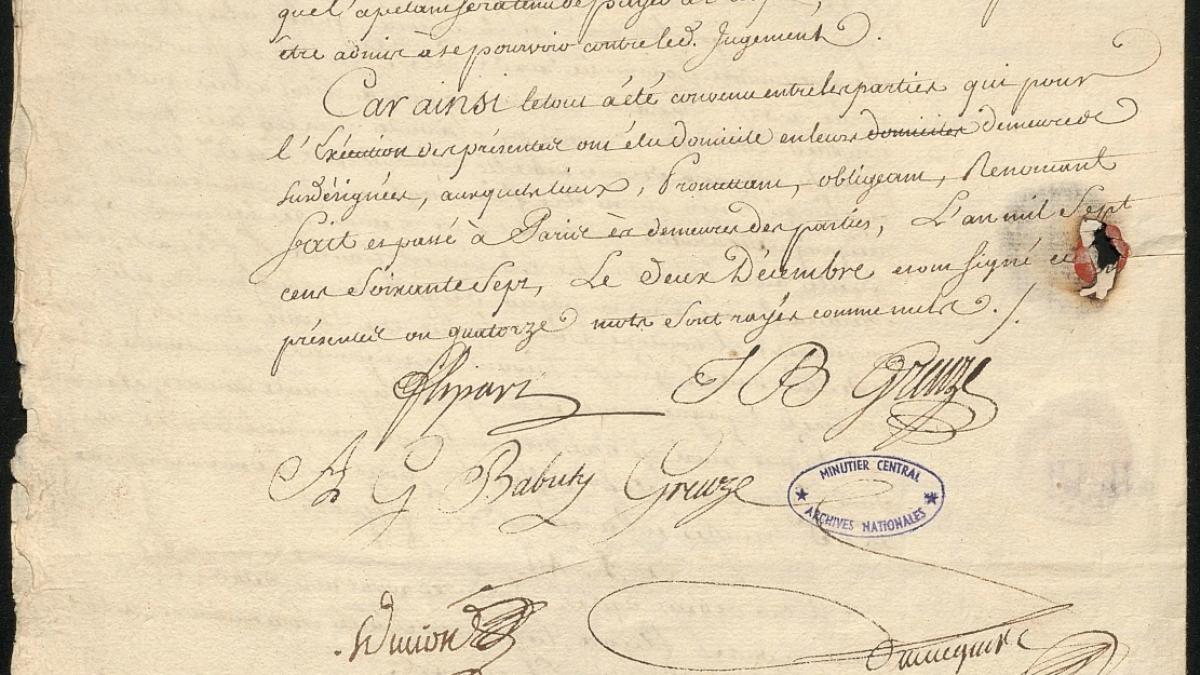 être admis à se pourvoir contre led. Jugement.
Car ainsi le tout a été convenu entre les parties qui pour
l'Exécution des présentes ont élu domicile en leurs domiciles demeures
susdésignées, auxquels lieux, Promettant, obligeant, Renonçant
fait et passé à Paris ès demeures des parties, L'an mil Sept
cent Soixante Sept, Le Deux Décembre et ont signé ces
présentes ou quatorze mots sont rayés comme nuls ./.
flipart
J B Greuze
A G Babuty Greuze
MINUTIER CENTRAL
ARCHIVES NATIONALES